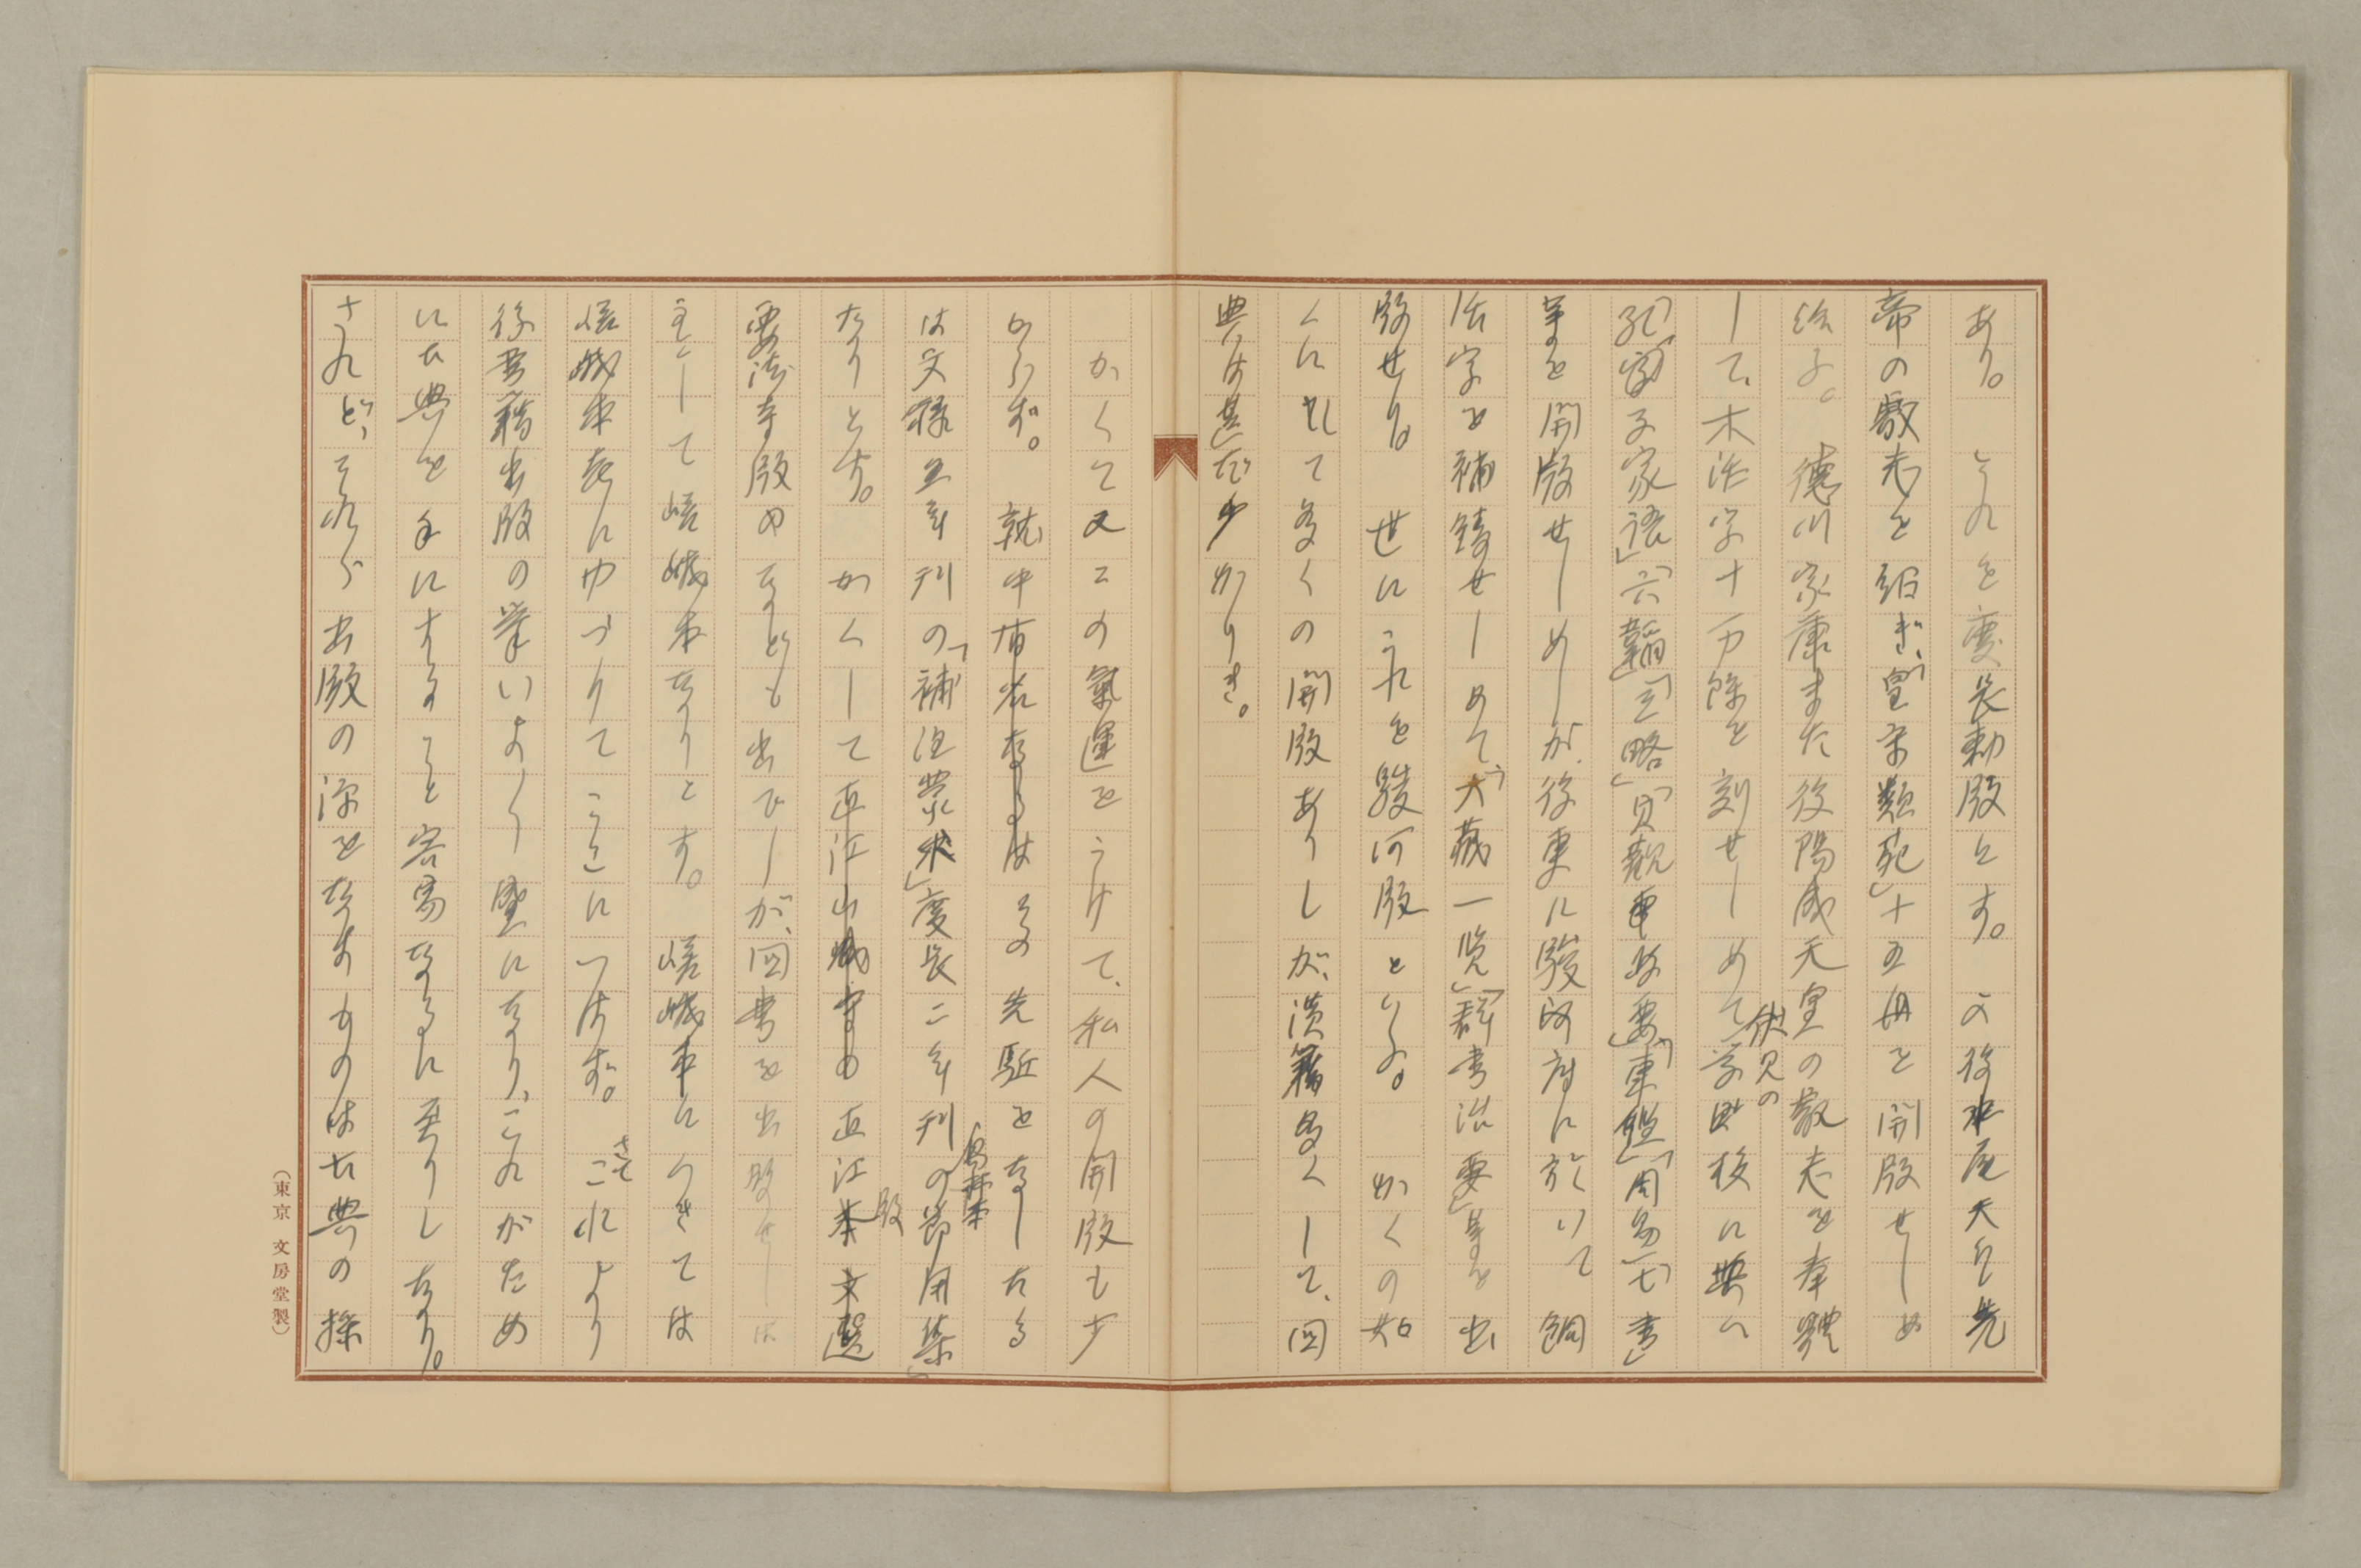 あり。これを慶長勅版とす。又後水尾天皇先
帝の叡志を紹ぎ、「皇宋類苑」十五冊を開版せしめ
給ふ。徳川家康また後陽成天皇の叡志を奉體
して、木活字十万餘を刻せしめて伏見の学校に與へ
「孔子家語」「六韜」「三略」「貞観政要」「東鑑」「周易」「七書」
等を開版せしめしが、後更に駿河府に於いて銅
活字を補鋳せしめて「大蔵一覧」「群書治要」等を出
版せり。世にこれを駿河版といふ。かくの如
くにして多くの開版ありしが、漢籍多くして、国
典は甚だ少かりき。
かくて又この氣運をうけて、私人の開版も少
からず。就中有名なるはその先駈をなしたる
は文禄五年刊の「補注蒙求」慶長二年刊の易林本「節用集」
なりとす。かくして直江版文選
要法寺版のなども出でしが、国書を出版せしは
主として嵯峨本なりとす。嵯峨本につきては
嵯峨本考にゆづりてここにいはず。さてこれより
後書籍出版の業いよく盛になり、これがため
に古典を手にすること容易なるに至りしなり。
されど、それら出版の源をなすものは古典の採
（東京 文房堂製）